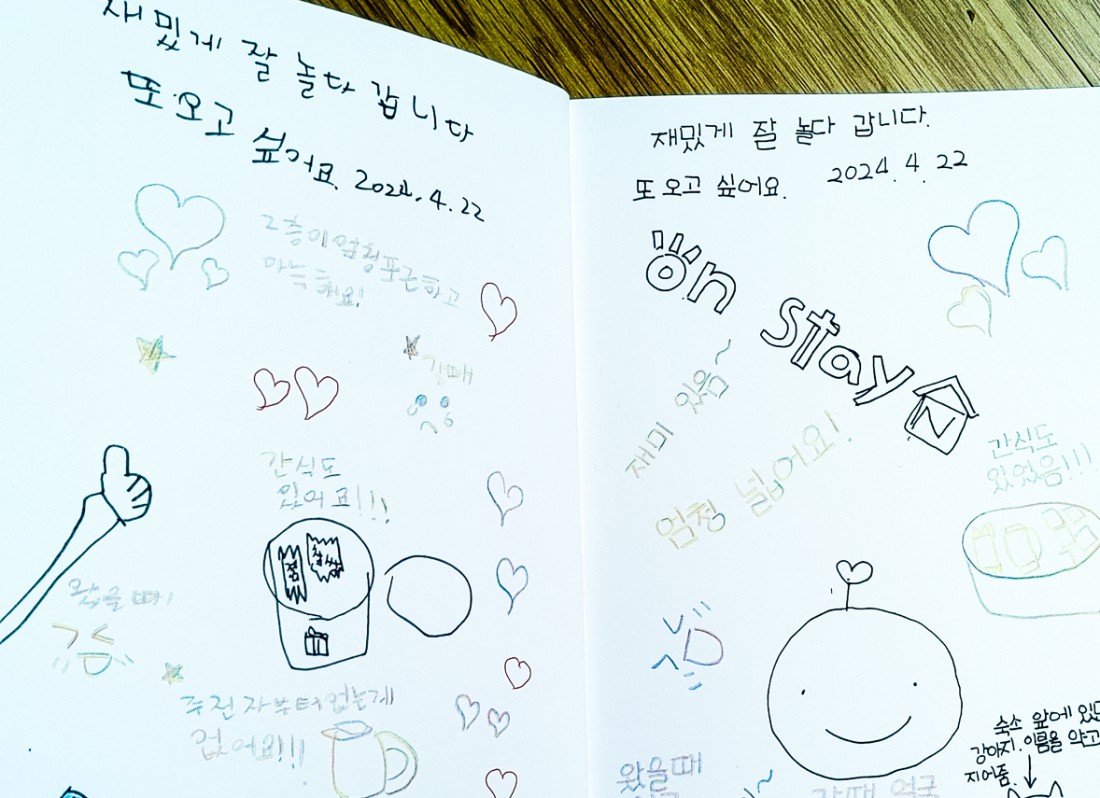 재밌게 잘 놀다 갑니다
또 오고 싶어요. 2024.4.22
2층이 엄청 포근하고
아늑해요!
갈때
간식도
있어요!!!
왔을때
주전자부터 없는게
없어요!!!
재밌게 잘 놀다 갑니다.
또 오고 싶어요. 2024.4.22
on stay
재미 있음~
엄청 넓어요!
간식도
있었음!!!
숙소 앞에
강아지. 이름을
지어줌.
왔을때
갈때